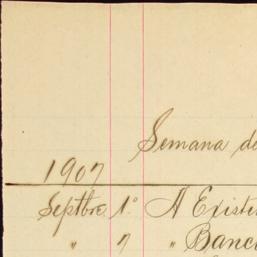 Semana de
1907
Septbre 1º A Existen
" 7 " Banco